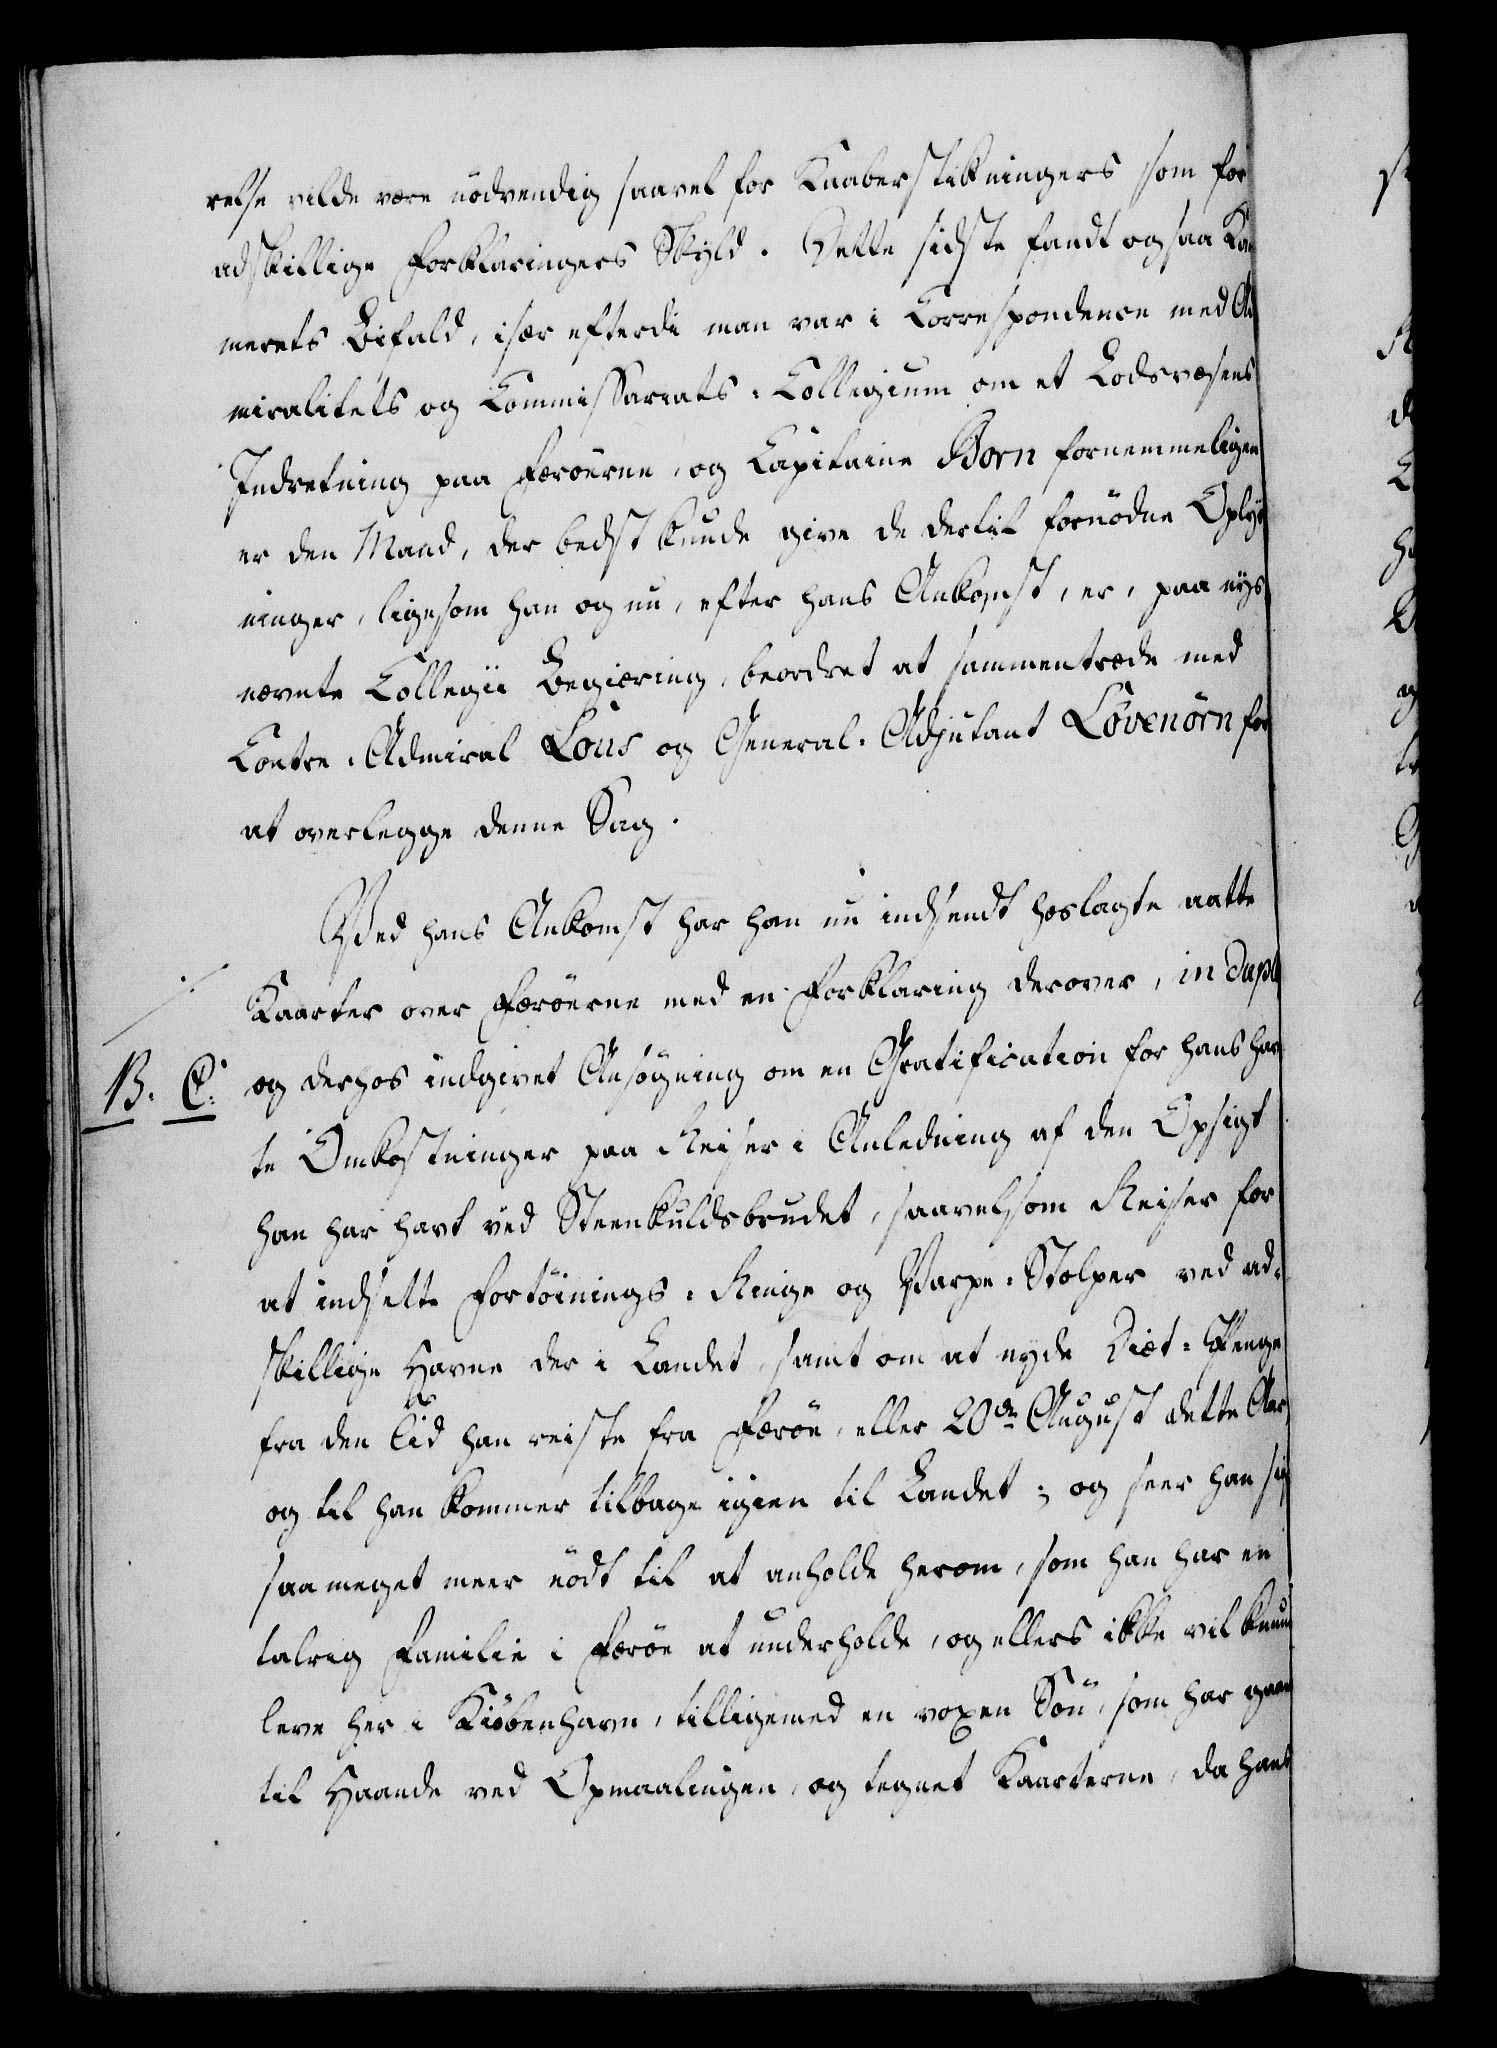 relse vilde være nödvendig saavel for Kaaberstikningers som for
adskillige Forklaringers Skyld. Dette sidste fandt og saa Kam
merets Bifald, især efterdi man var i Correspondence med Ad
miralitets og Commissariats-Collegium om et Lodsvæsens
Indretning paa Færöerne, og Capitaine Born fornemmeligen
er den Mand, der bedst kunde give de dertil fornödne Oplys
ninger, ligesom han og nu, efter hans Ankomst, er, paa nys
nævnte Collegii Begiering, beordret at sammentræde med
Contre-Admiral Lous og General-Adjutant Lövenörn for
at overlegge denne Sag.
Ved hans Ankomst har han nu indsendt hoslagte aatte
Kaarter over Færöerne med en Forklaring derover, in dupl
B. C. og derhos indgivet Ansögning om en Gratification for hans hav
te Omkostninger paa Reiser i Anledning af den Opsigt
han har havt ved Steenkuldsbrudet, saavelsom Reiser for
at indsette Fortöinings-Ringe og Varpe-Stolper ved ad-
skillige Havne der i Landet, samt om at nyde Diæt-Penge
fra den Tid han reiste fra Færöe, eller 20de August dette Aar
og til han kommer tilbage igien til Landet; og seer han sig
saa meget meer nödt til at anholde herom, som han har en
talrig Familie i Færöe at underholde, og ellers ikke vil kunne
leve her i Kiöbenhavn, tilligemed en voxen Sön, som har gaaet
til Haande ved Opmaalingen, og tegnet Kaarterne, da hans